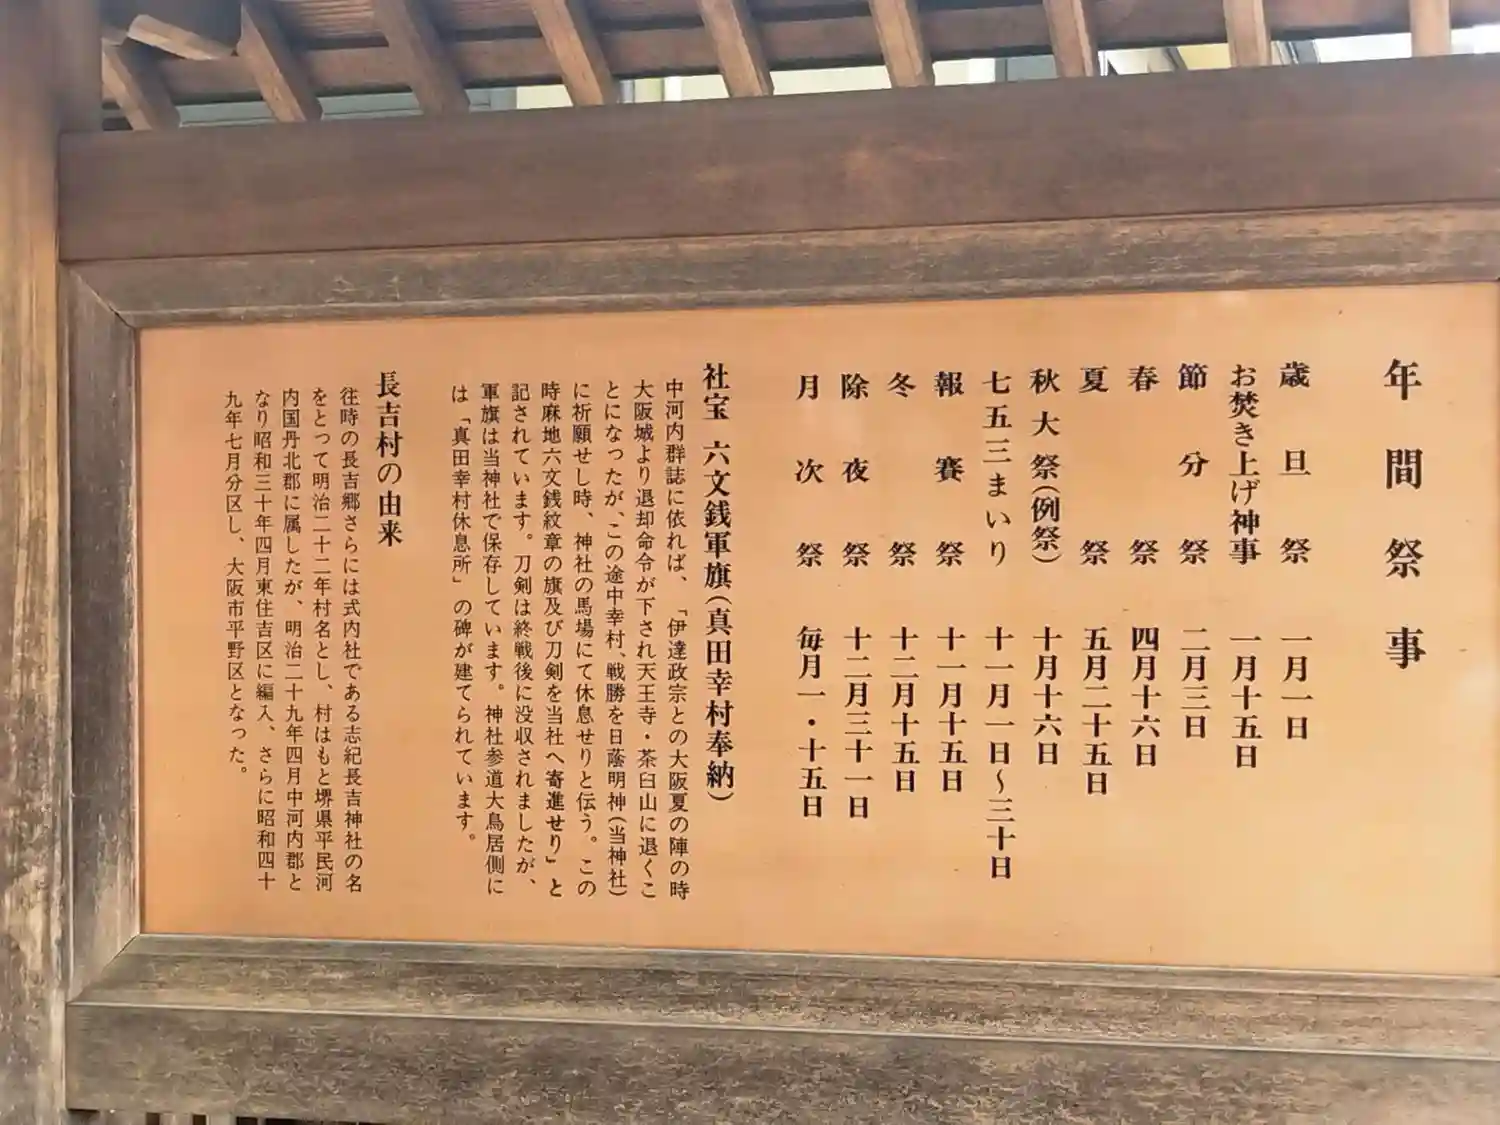 年間祭事
歳旦祭 一月一日
お焚き上げ神事 一月十五日
節分祭 二月三日
春祭 四月十六日
夏祭 五月二十五日
秋大祭(例祭) 十月十六日
七五三まいり 十一月一日～三十日
報賽祭 十一月十五日
冬祭 十二月十五日
除夜祭 十二月三十一日
月次祭 毎月一・十五日
社宝 六文銭軍旗(真田幸村奉納)
中河内群誌に依れば、「伊達政宗との大阪夏の陣の時
大阪城より退却命令が下され天王寺・茶臼山に退くこ
とになったが、この途中幸村、戦勝を日蔭明神(当神社)
に祈願せし時、神社の馬場にて休息せりと伝う。この
時麻地六文銭紋章の旗及び刀剣を当社へ寄進せり」と
記されています。刀剣は終戦後に没収されましたが、
軍旗は当神社で保存しています。神社参道大鳥居側に
は「真田幸村休息所」の碑が建てられています。
長吉村の由来
往時の長吉郷さらには式内社である志紀長吉神社の名
をとって明治二十二年村名とし、村はもと堺県平民河
内国丹北郡に属したが、明治二十九年四月中河内郡と
なり昭和三十年四月東住吉区に編入、さらに昭和四十
九年七月分区し、大阪市平野区となった。